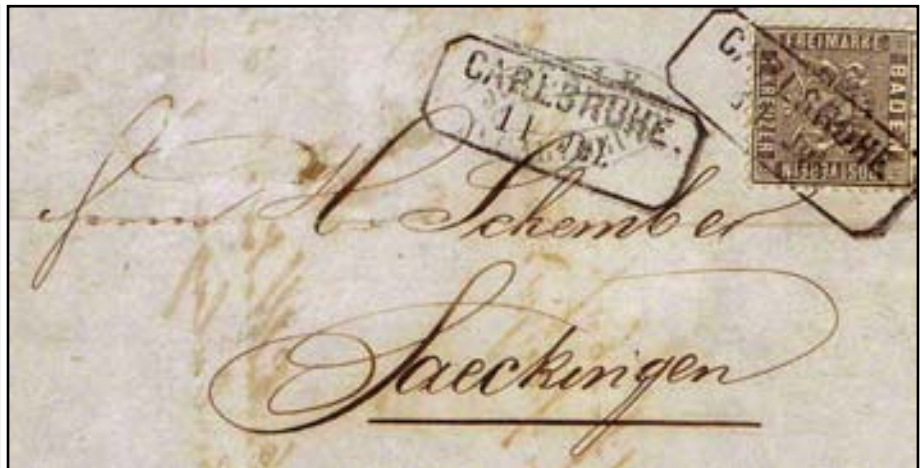 CARLSRUHE.
11
CARLSRUHE
FREIMARKE
BADEN
POSTVEREIN
Herrn H. Schember
Saeckingen